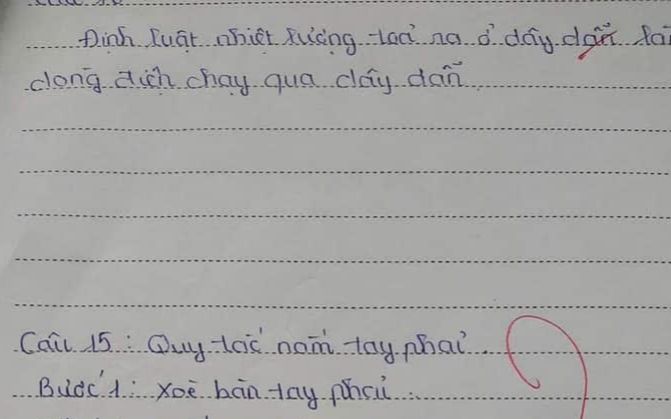 Định luật nhiệt lượng toả ra ở dây dẫn là
dòng địch chạy qua dây dẫn
Câu 15: Quy tắc nắm tay phải.
Bước 1: Xoè bàn tay phải.